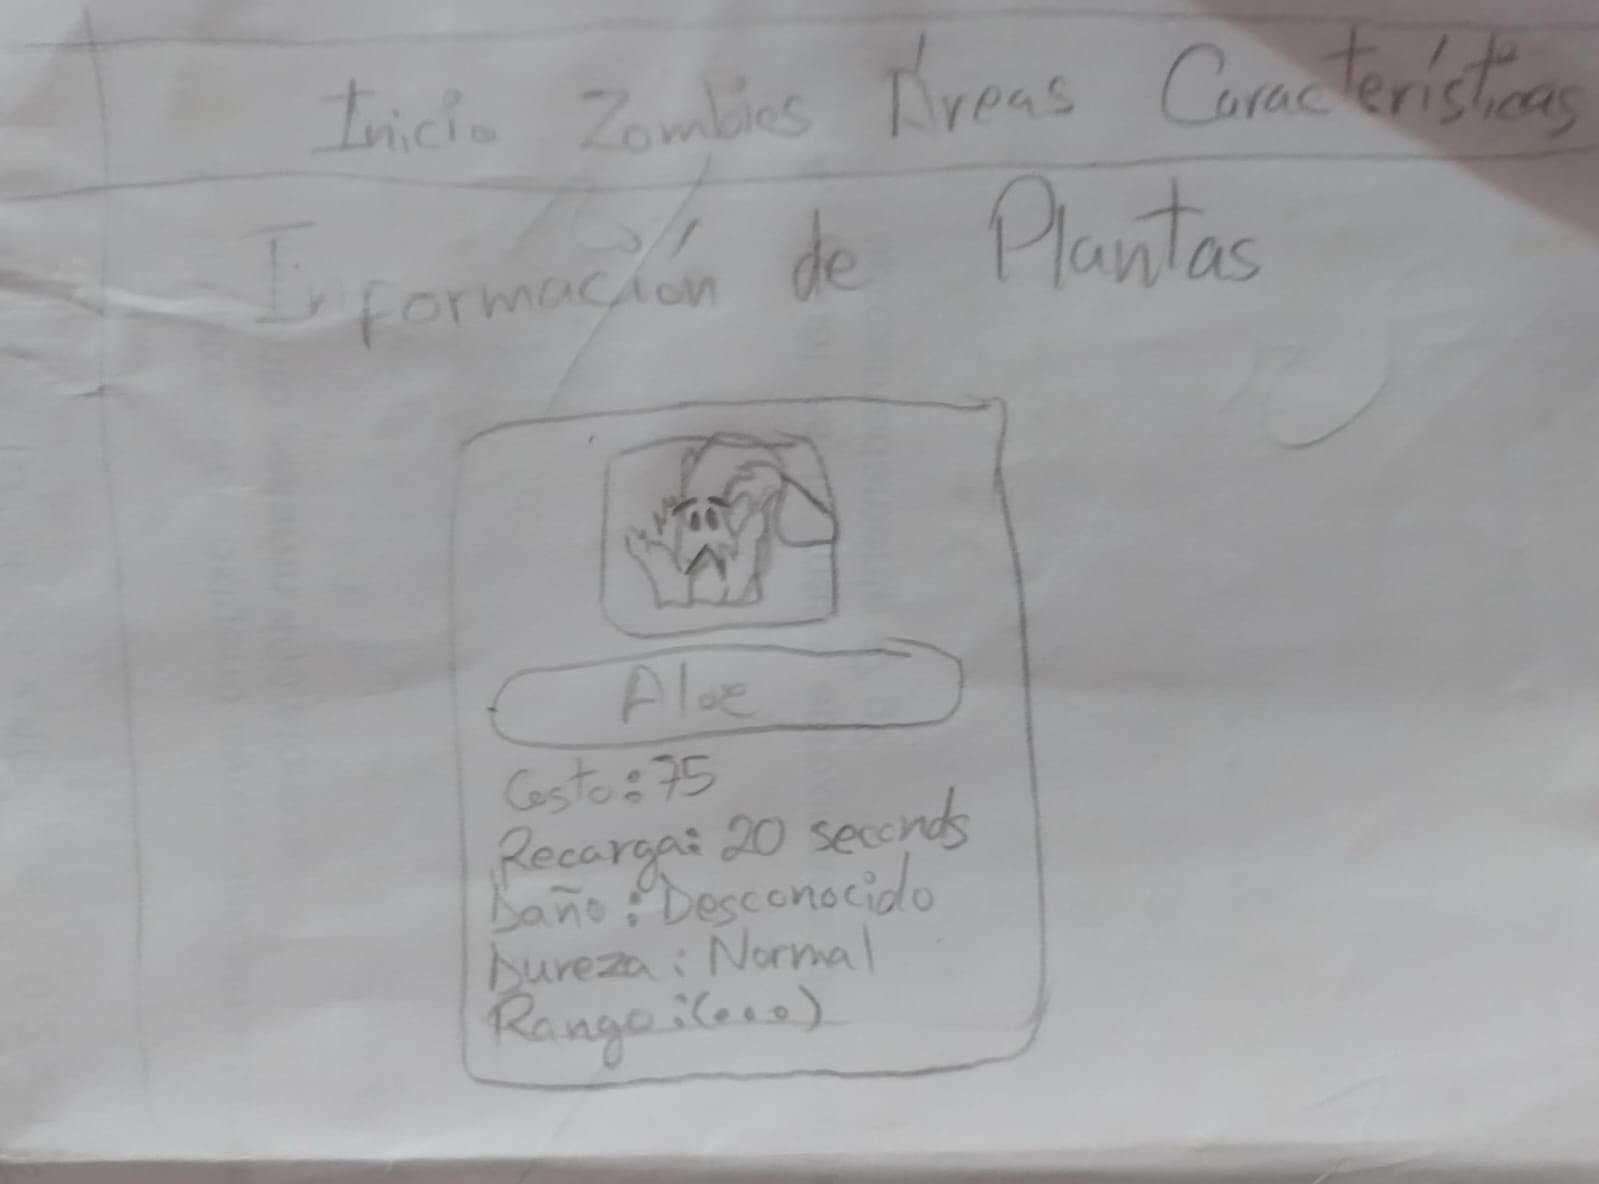 Inicio Zombies Áreas Características
Información de Plantas
Aloe
Costo: 75
Recarga: 20 seconds
Daño: Desconocido
Dureza: Normal
Rango: (...)